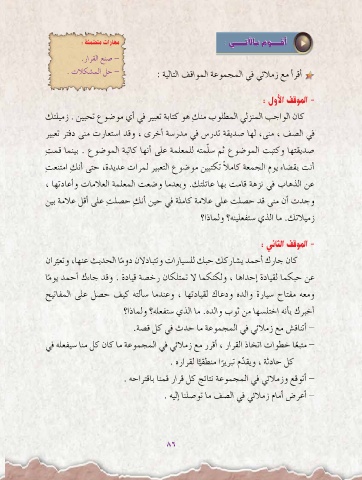 أقــوم بالآتــي
مهارات متضمنة :
– صنع القرار.
– حل المشكلات .
أقرأ مع زملائي في المجموعة المواقف التالية :
- الموقف الأول :
كان الواجب المنزلي المطلوب منكِ هو كتابة تعبير في أي موضوع تحبين . زميلتك
في الصف ، منى، لها صديقة تدرس في مدرسة أخرى ، وقد استعارت منى دفتر تعبير
صديقتها وكتبت الموضوع ثم سلّمته للمعلمة على أنها كاتبة الموضوع . بينما قمتِ
أنت بقضاء يوم الجمعة كاملاً تكتبين موضوع التعبير لمرات عديدة، حتى أنكِ امتنعتِ
عن الذهاب في نزهة قامت بها عائلتك. وبعدما وضعت المعلمة العلامات وأعادتها ،
وجدتِ أن منى قد حصلت على علامة كاملة في حين أنكِ حصلتِ على أقل علامة بين
زميلاتك. ما الذي ستفعلينه؟ ولماذا؟
- الموقف الثاني :
كان جارك أحمد يشاركك حبك للسيارات وتتبادلان دومًا الحديث عنها، وتعبّران
عن حبكما لقيادة إحداها ، ولكنكما لا تمتلكان رخصة قيادة . وقد جاءك أحمد يومًا
ومعه مفتاح سيارة والده ودعاك لقيادتها ، وعندما سألته كيف حصل على المفاتيح
أخبرك بأنه اختلسها من ثوب والده. ما الذي ستفعله؟ ولماذا؟
– أتناقش مع زملائي في المجموعة ما حدث في كل قصة.
– متبعًا خطوات اتخاذ القرار ، أقرر مع زملائي في المجموعة ما كان كل منا سيفعله في
كل حادثة ، ويقدّم تبريرًا منطقيًا لقراره .
– أتوقع وزملائي في المجموعة نتائج كل قرار قمنا باقتراحه .
– أعرض أمام زملائي في الصف ما توصلنا إليه .
٨٦